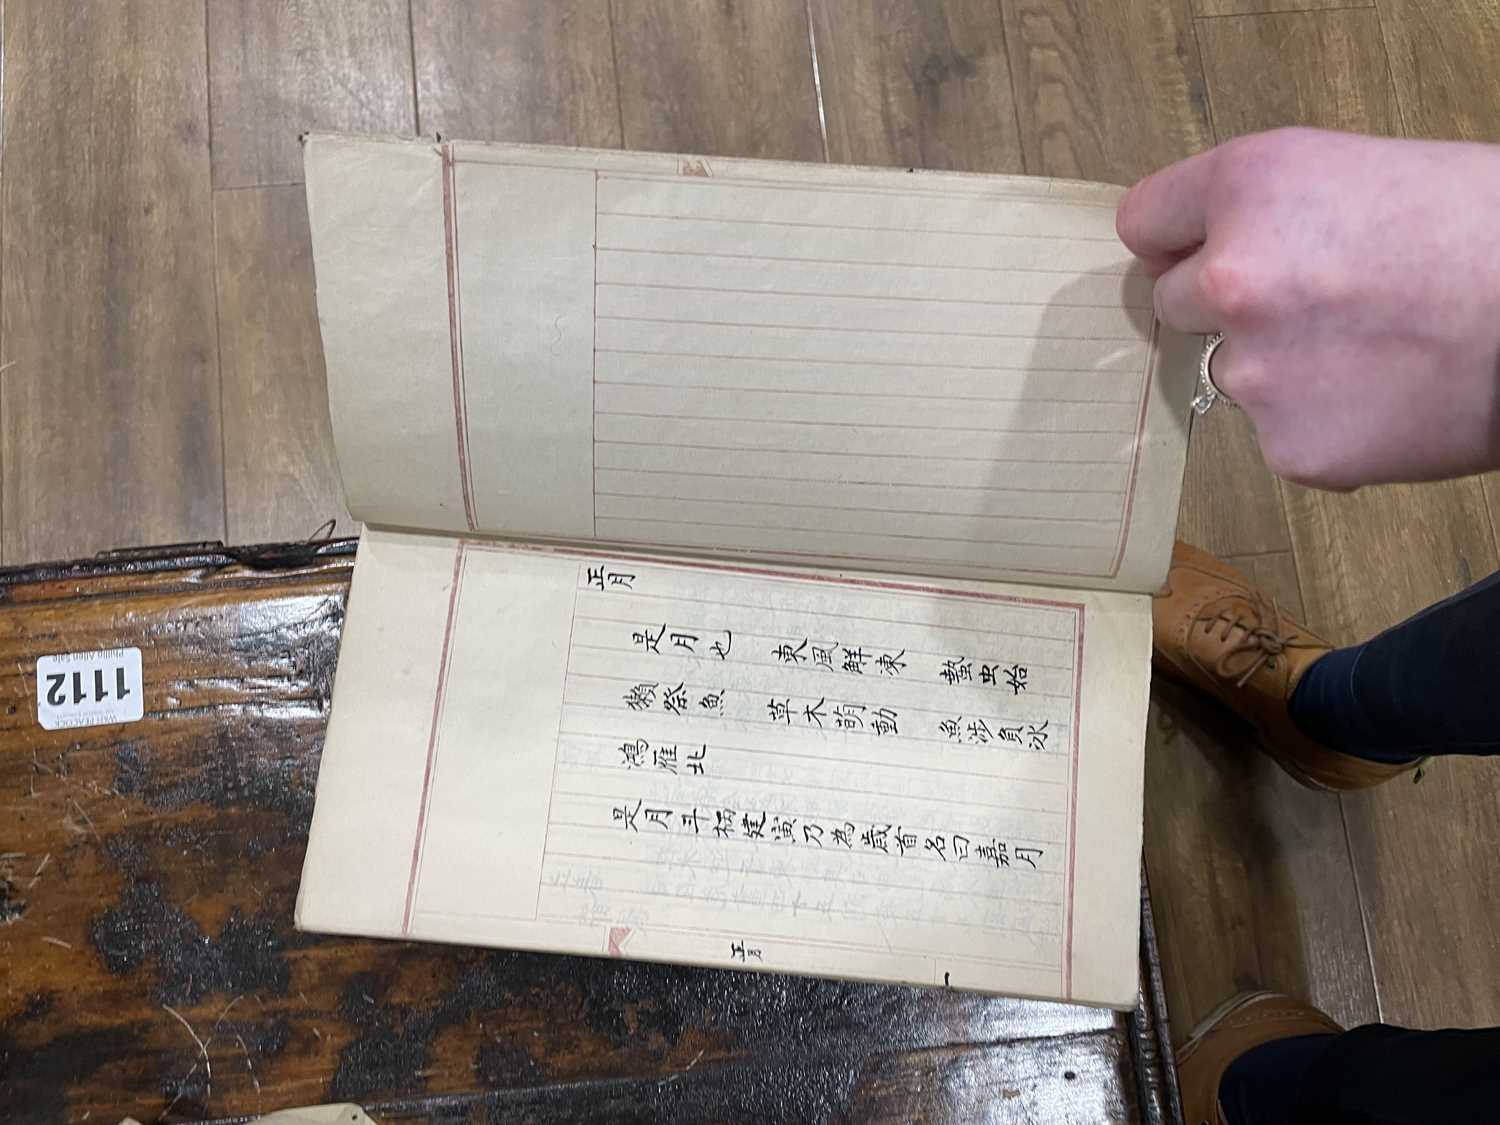 正月
是月也 東風解凍 蟄虫始
獺祭魚 草木萌動 魚涉負冰
鴻雁北
是月斗柄建寅乃為歲首名曰嘉月
正月
一
1112
Philip Allen Sale